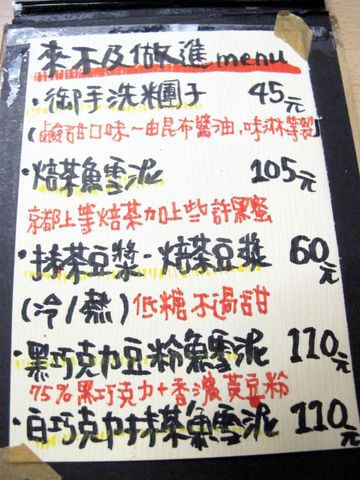 來不及做進menu
・御手洗糰子 45元
(鹹甜口味~由昆布醬油,味淋等製)
・焙茶魚雪泥 105元
京都上等焙茶加上些許黑蜜
・抹茶豆漿-焙茶豆漿 60元
(冷/熱) 低糖不過甜
・黑巧克力豆粉魚雪泥 110元
75%黑巧克力+香濃黃豆粉
・白巧克力抹茶魚雪泥 110元